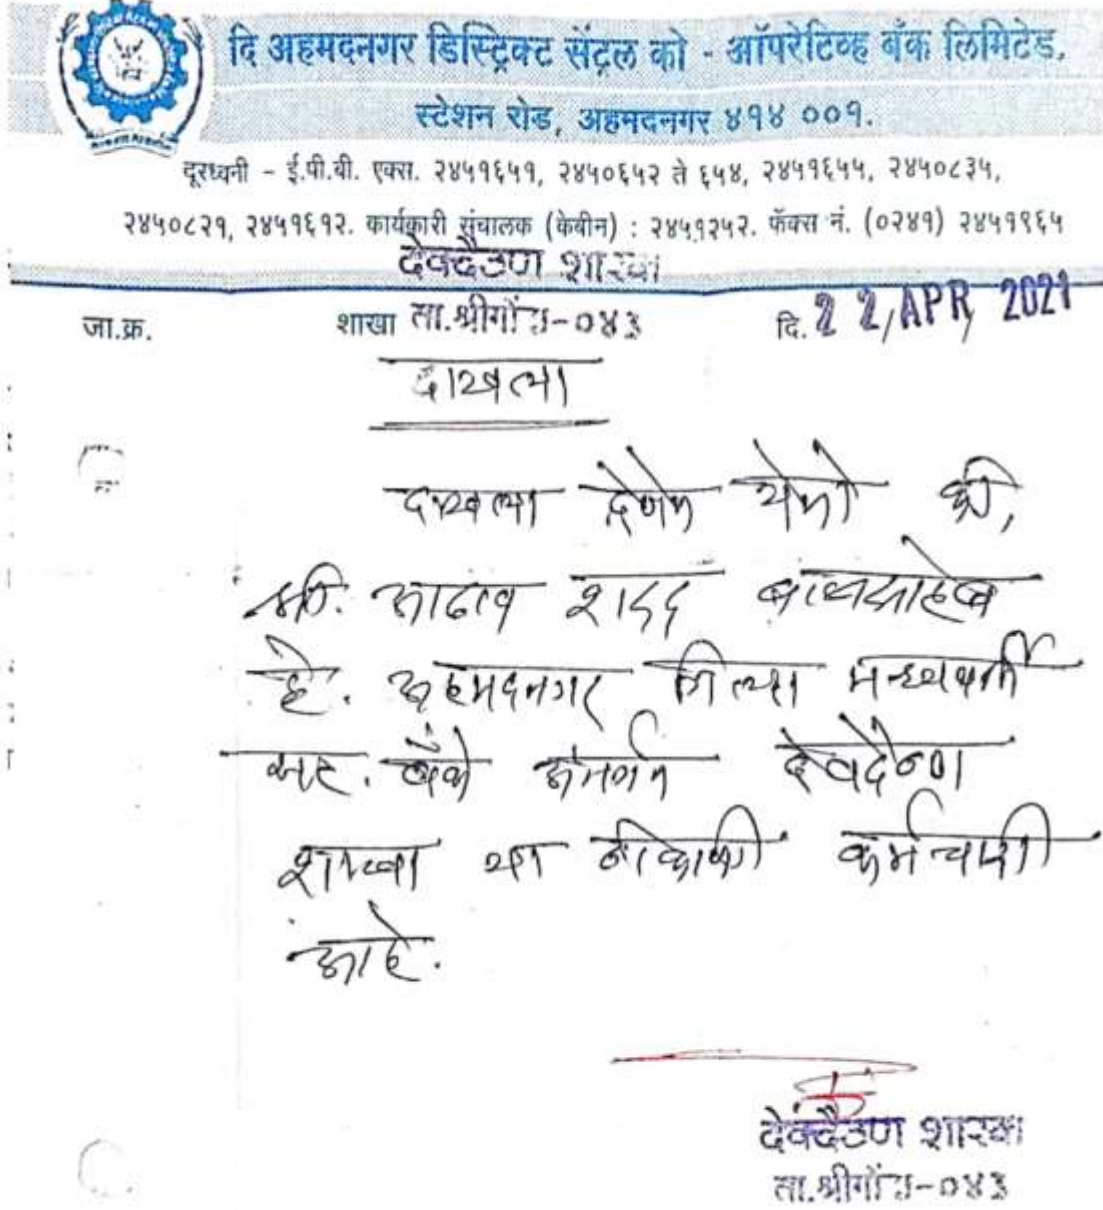 दि अहमदनगर डिस्ट्रिक्ट सेंट्रल को - ऑपरेटिव्ह बँक लिमिटेड,
स्टेशन रोड, अहमदनगर ४१४ ००१.
दूरध्वनी - ई.पी.बी. एक्स. २४५१६५१, २४५०६५२ ते ६५४, २४५१६५५, २४५०८३५,
२४५०८२१, २४५१६१२. कार्यकारी संचालक (केबीन) : २४५१२५२. फॅक्स नं. (०२४१) २४५१९६५
देवदैठण शाखा
जा.क्र. शाखा ता.श्रीगोंदा-०४३ दि. 2 2, APR, 2021
दाखला
दाखला देणेत येतो की,
श्री. आढाव शरद बाळासाहेब
हे. अहमदनगर जिल्हा मध्यवर्ती
सह. बँके अंतर्गत देवदैठण
शाखा या ठिकाणी कर्मचारी
आहे.
देवदैठण शाखा
ता.श्रीगोंदा-०४३